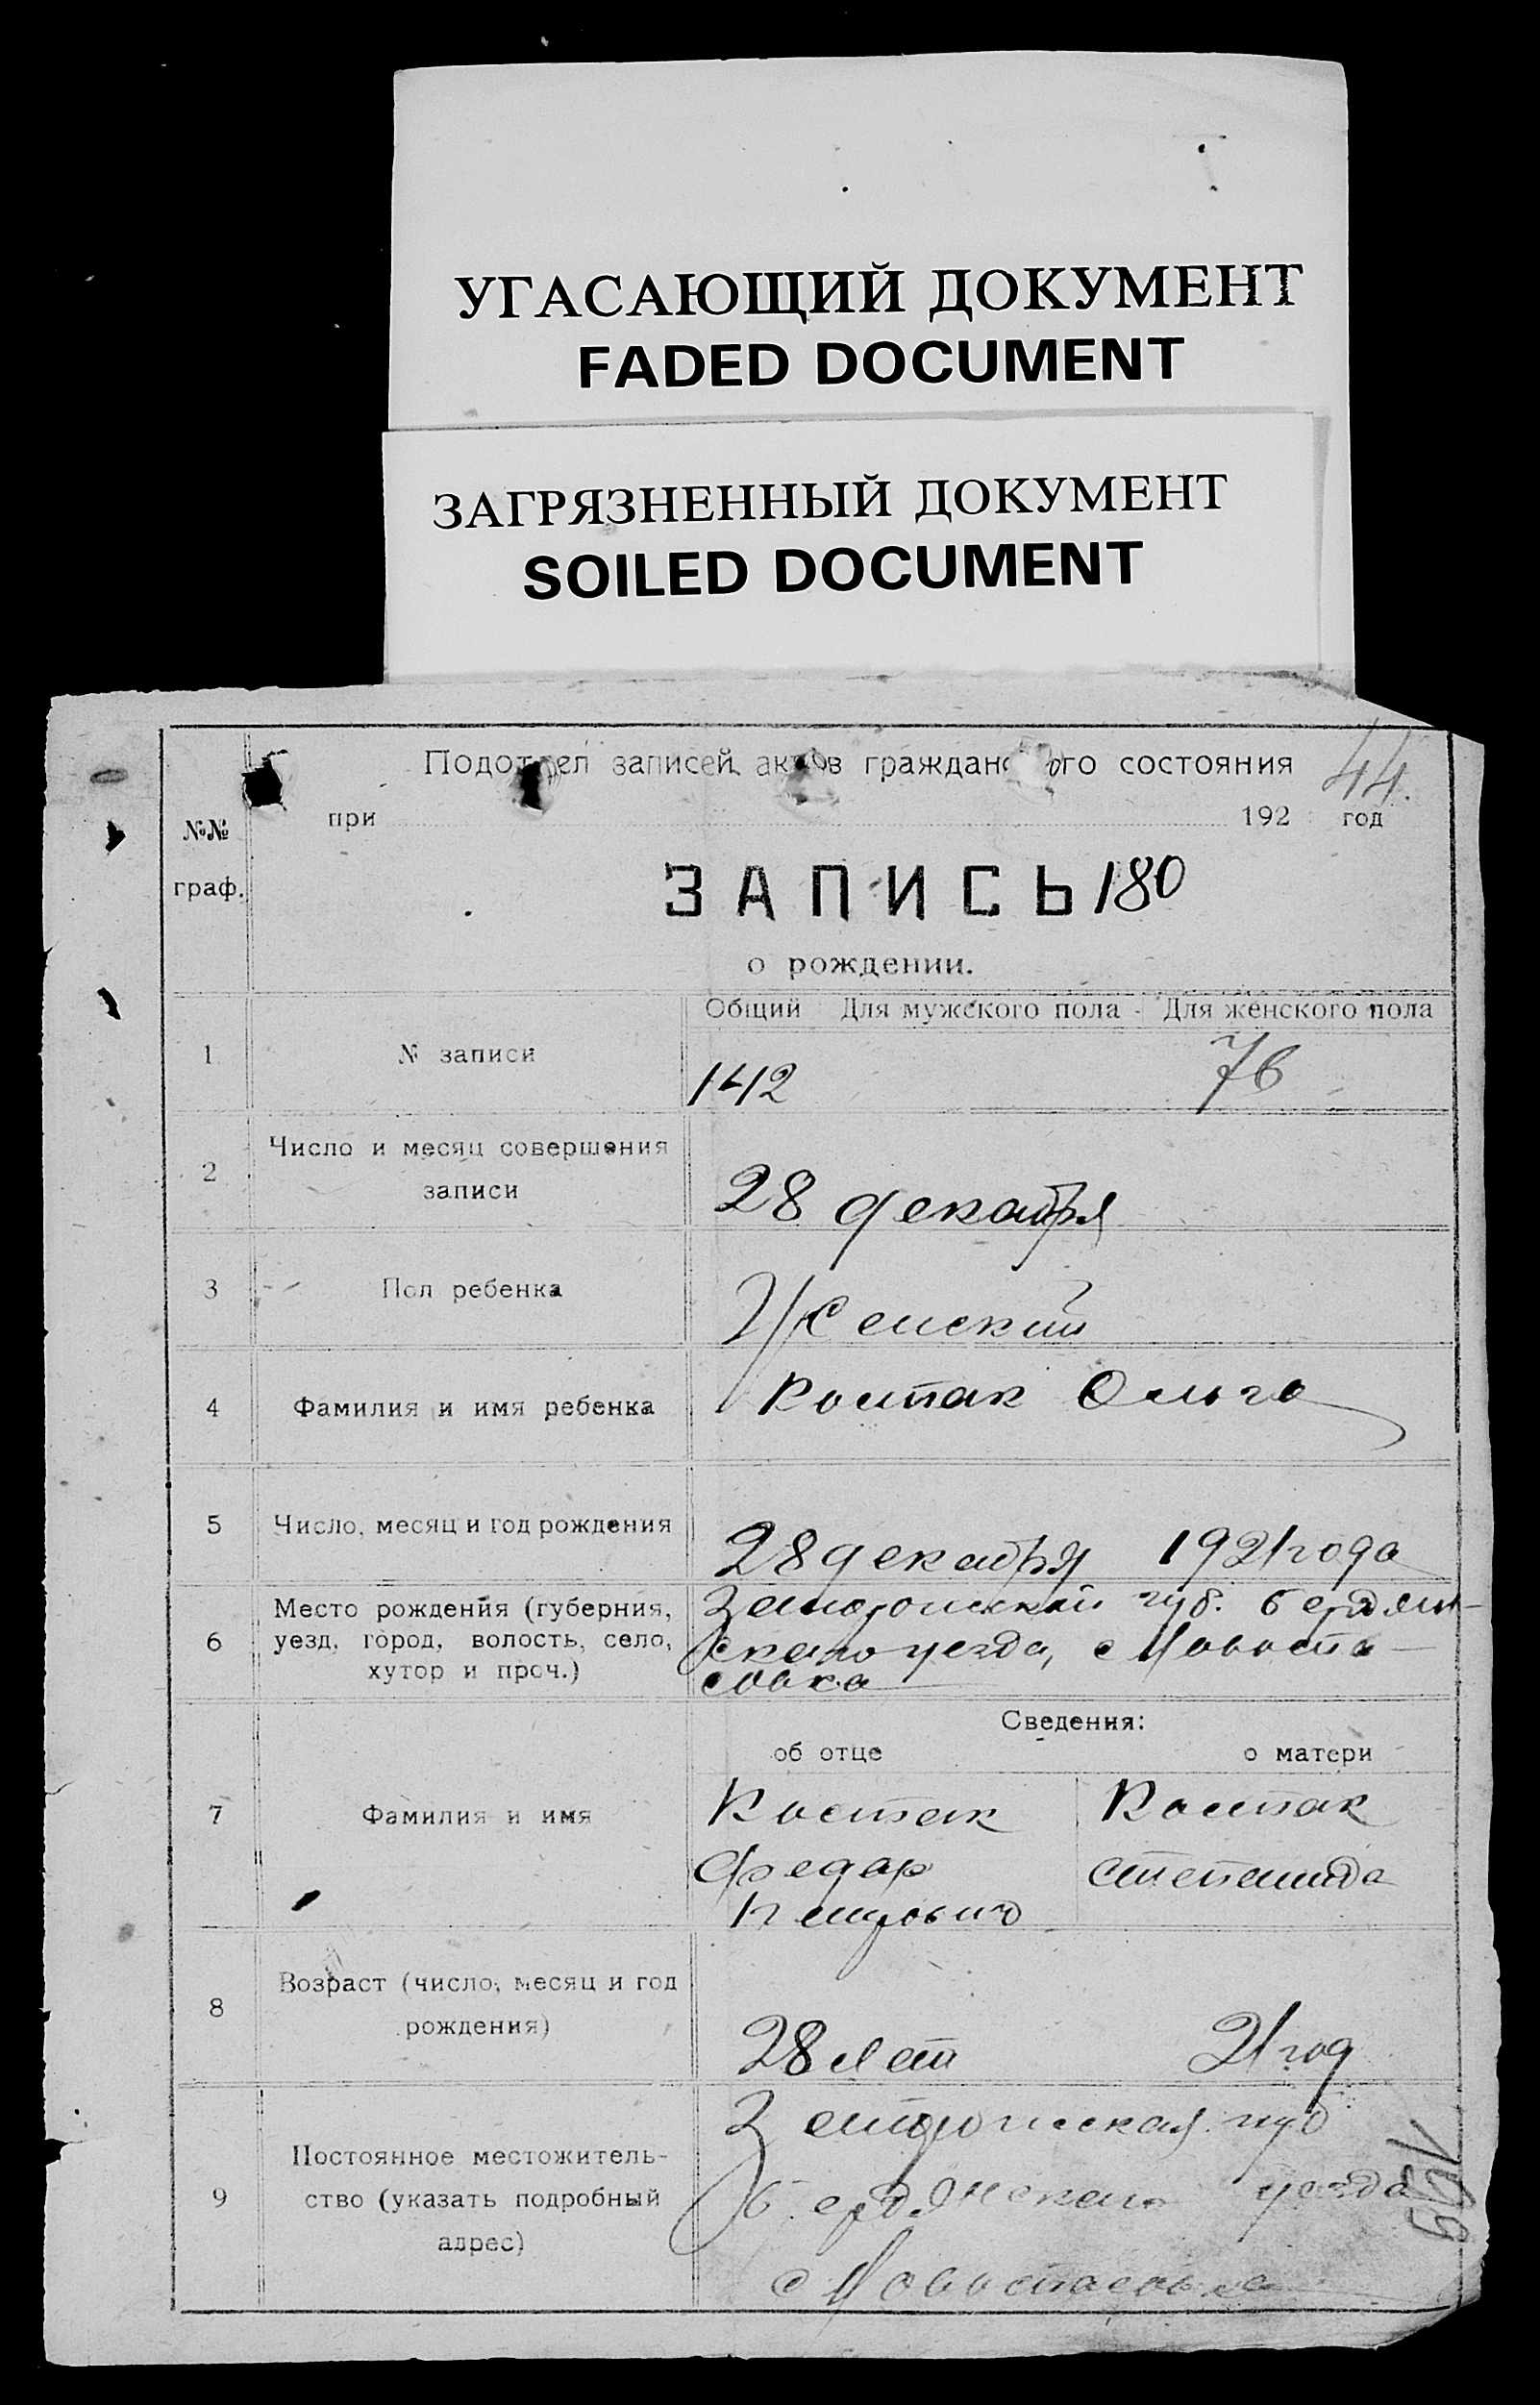 УГАСАЮЩИЙ ДОКУМЕНТ
FADED DOCUMENT
ЗАГРЯЗНЕННЫЙ ДОКУМЕНТ
SOILED DOCUMENT
Подотдел записей актов гражданского состояния 44.
при 192 год
№№
граф.
ЗАПИСЬ 180
о рождении.
Общий Для мужского пола Для женского пола
1 № записи 142 76
2 Число и месяц совершения
записи
28 декабря
3 Пол ребенка Женский
4 Фамилия и имя ребенка Костак Ольга
5 Число, месяц и год рождения 28 декабря 1921 года
6 Место рождения (губерния,
уезд, город, волость, село,
хутор и проч.)
губ. Бердян-
ского уезда, с Новоспа-
совка
Сведения:
об отце о матери
7 Фамилия и имя
Костак Костак
Федар Степанида
8 Возраст (число, месяц и год
рождения)
28 лет 21 год
9 Постоянное местожитель-
ство (указать подробный
адрес)
губ
Бердянскаго уезда
с Новоспасовка